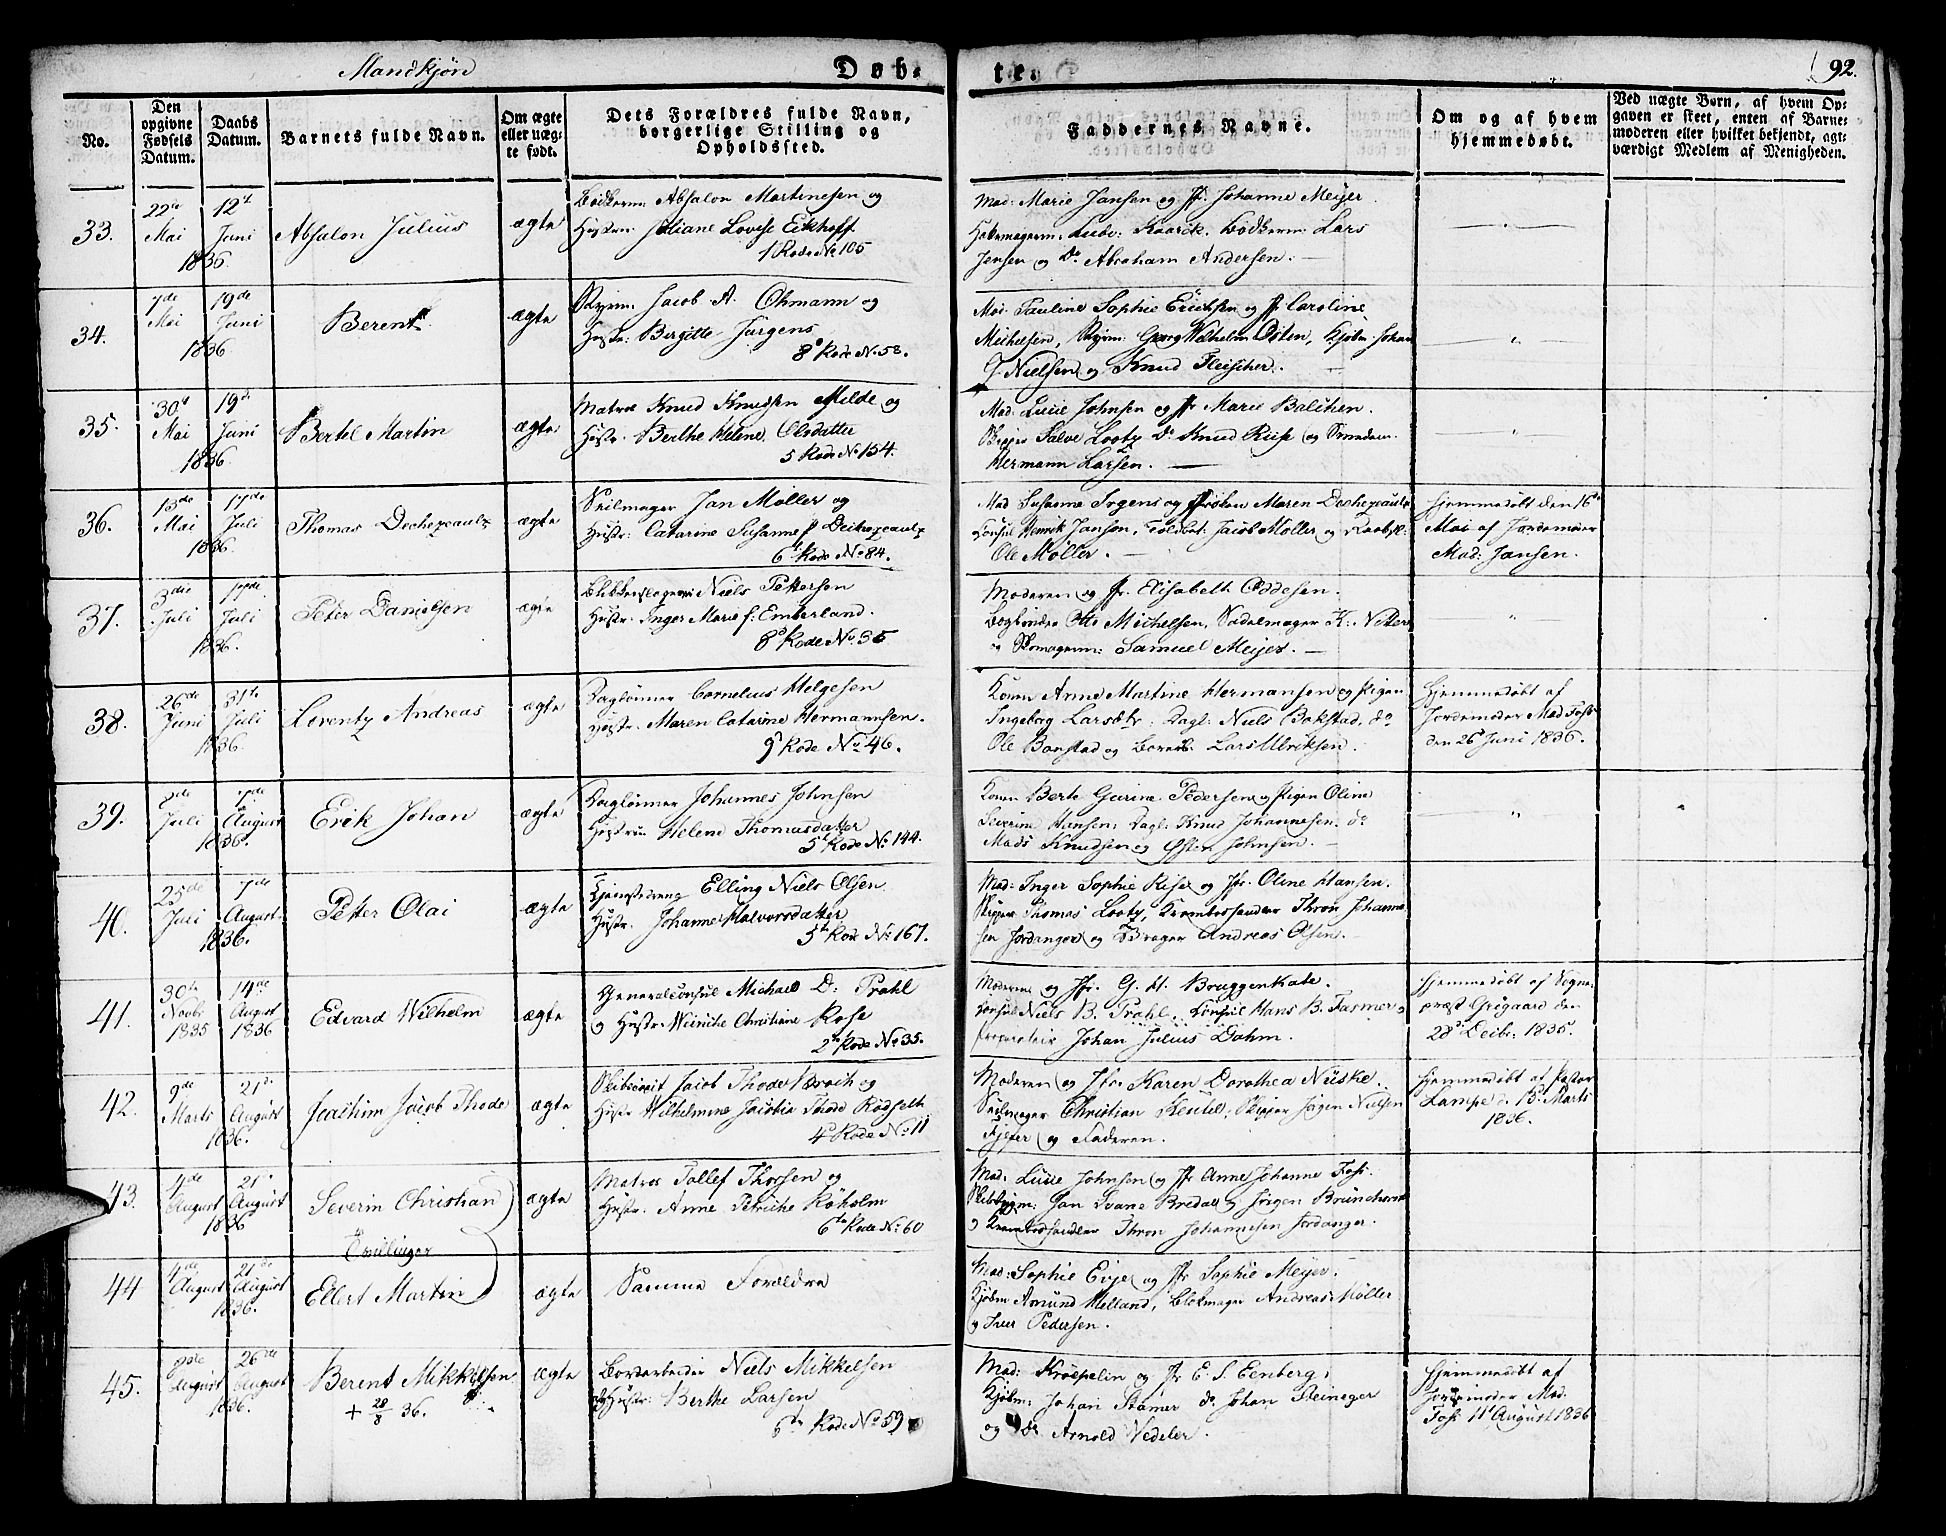 Mandkjøn
Døb-
te.
92.
No.
Den opgivne Fødsels Datum.
Daabs Datum.
Barnets fulde Navn.
Om ægte eller uægte født.
Dets Forældres fulde Navn, borgerlige Stilling og Opholdssted.
Faddernes Navne.
Om og af hvem hjemmedøbt.
Ved uægte Børn, af hvem Opgaven er skeet, enten af Barnemoderen eller hvilket bekjendt, agtværdigt Medlem af Menigheden.
33.
22de Mai
12te Juni
1836.
Absalon Julius
ægte
Bødkerm Absalon Martinesen og
Hustru: Juliane Lovise Eckhoff
1 Rode No 105
Mad: Marie Jansen og Jfr. Johanne Meyer.
Ludv: Kaarck, Bødkerm: Lars
Jensen og Do Abraham Andersen.
34.
7de Mai
19de Juni
1836
Berent
ægte
Jacob A. Ohmann og
Hustr: Bergitte Jürgens
8de Rode No. 58.
Mad. Pauline Sophie Erichsen og Jfr Caroline
Michelsen, Georg Wilhelm Osten, Kjøbm: Johan
J. Nielsen og Knud Fleischer.
35.
30te Mai
19de Juni
1836.
Bertel Martin
ægte
Matros Knud Knudsen Milde og
Hustr. Berthe Helene Olsdatter
5 Rode No 154.
Mad. Lucie Johnsen og Jfr Marie Balchen.
Skipper Salve Lootz Do Knud Riise og Smedem.
Hermann Larsen.
36.
13de Mai
17de Juli
1836.
Thomas Dechezeaulx
ægte
Seilmager Jan Møller og
Hustr: Catarine Susanne f Dechezeaulx
6te Rode No 84.
Mad Susanne Irgens og Frøken Maren Dechezeaulx
Consul Henrik Jansen, Toldbet: Jacob Møller og
Ole Møller.
Hjemmedøbt den 16de
Mai af Jordemoder
Mad: Jansen.
37.
3die Juli
17de Juli
1836.
Peter Danielsen
ægte
Blikkenslager Niels Pettersen
Hustr: Inger Marie f: Emberland.
8de Rode No. 35
Moderen og Jfr. Elisabeth Oddesen.
Bogbinder Otto Michelsen, Sadelmager K:
og Skomagerm: Samuel Meyer.
38.
26de Juni
31te Juli
1836.
Lorentz Andreas
ægte
Daglønner Cornelius Helgesen
Hustr. Maren Catarine Hermannsen.
9de Rode No. 46.
Konen Anne Martine Hermansen og Pigen
Ingeborg Larsdtr: Dagl: Niels Bakstad, do
Ole Banstad og Lars Ulriksen.
Hjemmedøbt af
Jordemoder Mad Foss
den 26 Juni 1836.
39.
Juli
7de August
1836.
Erik Johan
ægte
Daglønner Johannes Johnsen
Hustru Helene Thomasdatter
5 Rode No. 144.
Konen Berte Gurine Pedersen og Pigen Oline
Severine Hansen, Dagl: Knud Johannesen. do
Mads Knudsen og Østen Johnsen.
40.
25de Juli
7de August.
1836.
Petter Olai
ægte
Tjenstedreng Elling Niels Olsen
Hustr. Johanne Halvorsdatter
5te Rode No. 167.
Mad: Inger Sophie Riise og Jfr. Oline Hansen.
Skipper Thomas Lootz, Krambodhandler Thron Johanne-
sen Jordanger og Brager Andreas Olsen.
41.
30te Novbr 1835
14de August 1836
Edvard Wilhelm
ægte
Generalconsul Michael D: Prahl
og Hustr: Wenche Christiane Rose
2de Rode No 35.
Moderen og Jfr. G. H. Bruggenkate.
Consul Niels B. Prahl, Consul Hans B. Fasmer og
Johan Julius Dahm.
Hjemmedøbt af Sogne-
præst Grøgaard den
28de Decbr. 1835.
42.
9de Marts
21de August
1836.
Joachim Jacob Thode
ægte
Jacob Thode Broch og
Hustr Wilhelmine Jacobia Thode Rosselt
4de Rode No 11
Moderen og Jfr. Karen Dorothea Nüske.
Seilmager Christian Keutel, Skipper Jørgen Nielsen
Kjeser og Faderen.
Hjemmedøbt af Pastor
Lampe d. 15 Marts
1836.
43.
4de August
21de August
1836
Severin Christian
Tvillinger
ægte
Matros Tollef Thorsen og
Hustr. Anne Petriche Røeholm
6te Rode No. 60
Mad. Lucie Johnsen og Jfr Anne Johanne Foss.
Jan Svane Bredal og Jørgen Brunchorst
og Krambodhandler Thron Johannesen Jordanger.
44
4de August
21de August
1836.
Ellert Martin
ægte
Samme Forældre
Mad: Sophie Evje og Jfr Sophie Meyer.
Kjøbm Amund Helland, Blokmager Andreas Møller
og Iver Pedersen.
45.
August
26de August
1836.
Berent Mikkelsen
+ 28/8 36.
ægte
Bordarbeider Niels Mikkelsen
og Hustr: Berthe Larsen
6te Rode No 59
Mad: Krøepelin og Jfr E. S. Eenberg,
Kjøbm: Johan Stamer do Johan Fleineger
og do Arnold Nedeler.
Hjemmedøbt af
Jordemoder Mad.
Foss 11te August 1836